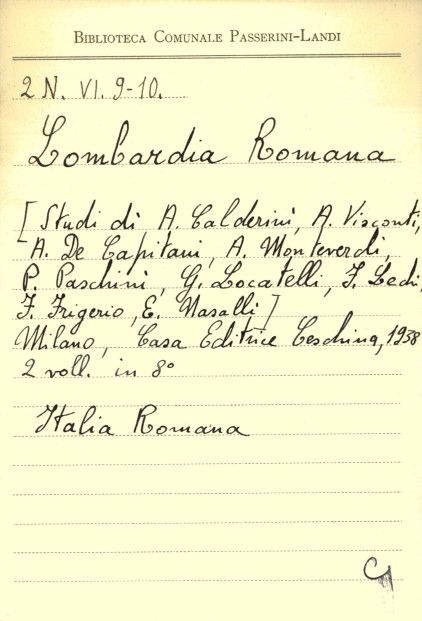 BIBLIOTECA COMUNALE PASSERINI-LANDI
2 N. VI. 9-10.
Lombardia Romana
[Studi di A. Calderini, A. Visconti,
A. De Capitani, A. Monteverdi,
P. Paschini, G. Locatelli, F. Ledi,
F. Frigerio, E. Nasalli]
Milano, Casa Editrice Ceschina, 1938
2 voll. in 8°
Italia Romana